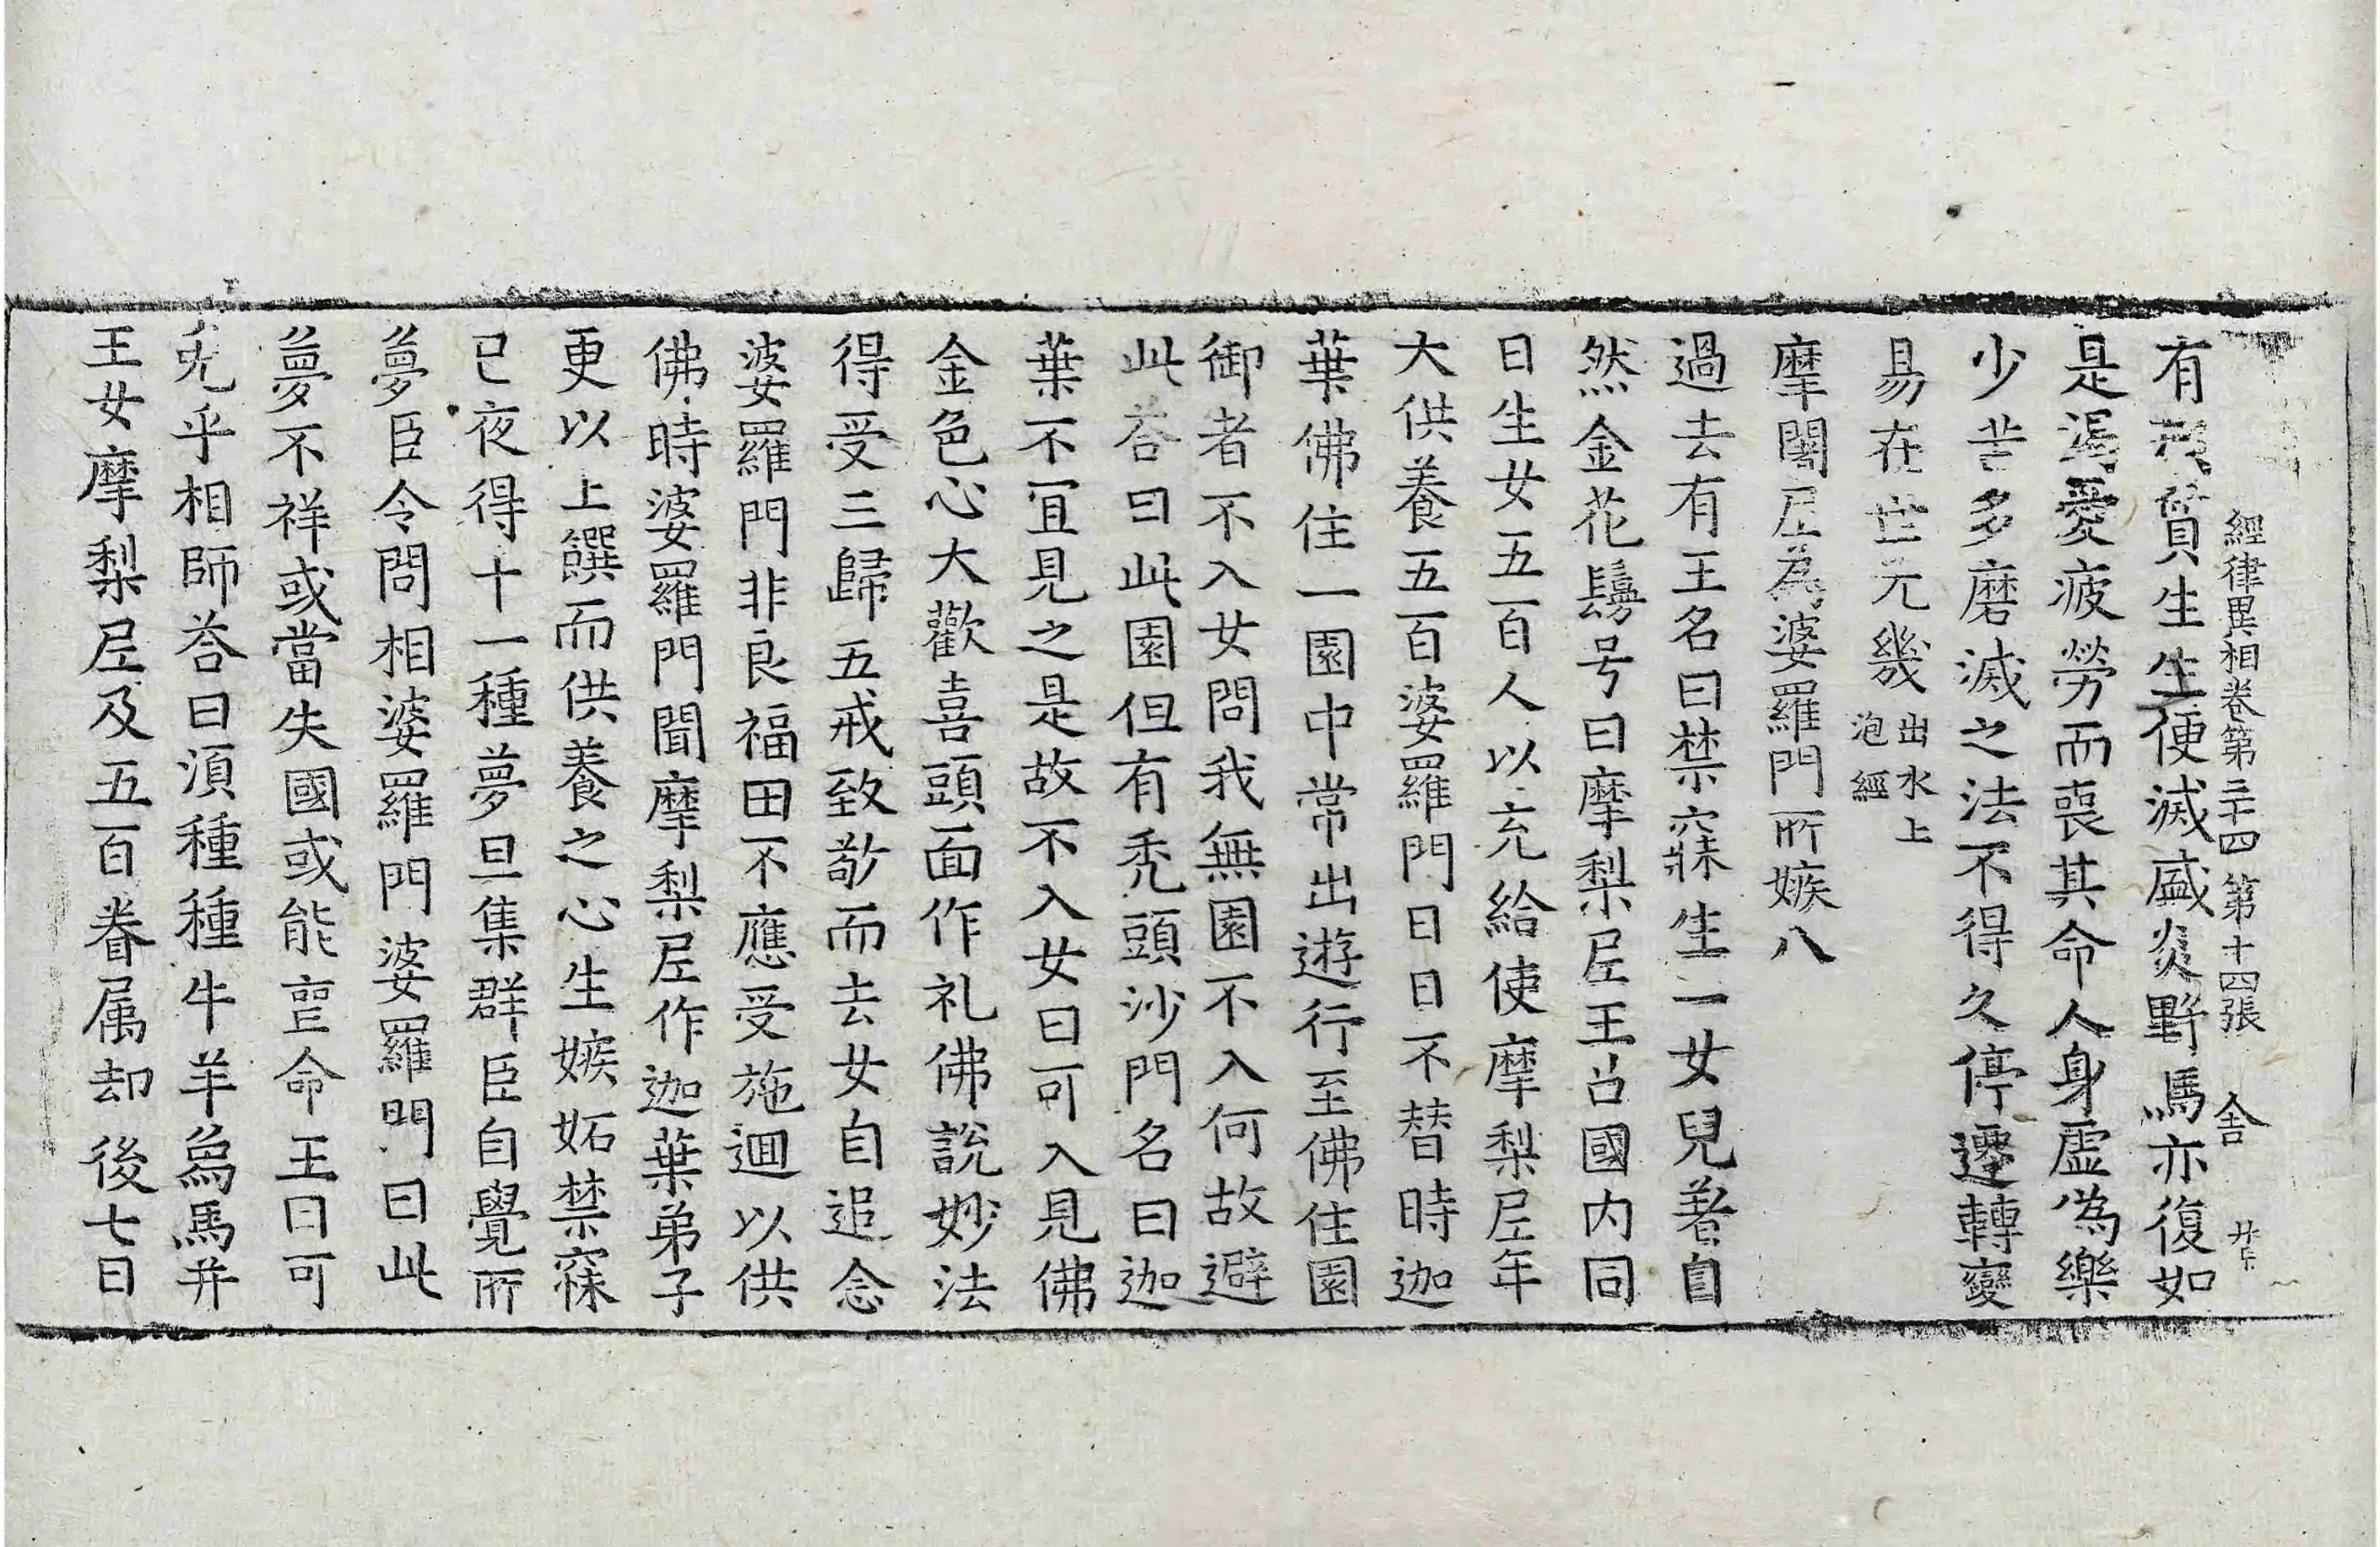 經律異相卷第三十四 第十四張 舍
有形質生生便滅盛炎野馬亦復如
是渴愛疲勞而喪其命人身虛偽樂
少苦多磨滅之法不得久停遷轉變
易在世无幾出水上泡經
摩闍尼為婆羅門所嫉八
過去有王名曰禁寐生一女兒著自
然金花鬘号曰摩梨尼王占國內同
日生女五百人以充給使摩梨尼年
大供養五百婆羅門日日不替時迦
葉佛住一園中常出遊行至佛住園
御者不入女問我無園不入何故避
此荅曰此園但有禿頭沙門名曰迦
葉不宜見之是故不入女曰可入見佛
金色心大歡喜頭面作礼佛說妙法
得受三歸五戒致敬而去女自追念
婆羅門非良福田不應受施迴以供
佛時婆羅門聞摩梨尼作迦葉弟子
更以上饌而供養之心生嫉妬禁寐
已夜得十一種夢旦集群臣自覺所
夢臣令問相婆羅門婆羅門曰此
夢不祥或當失國或能䘮命王曰可
免乎相師荅曰湏種種牛羊象馬并
王女摩梨尼及五百眷属却後七日